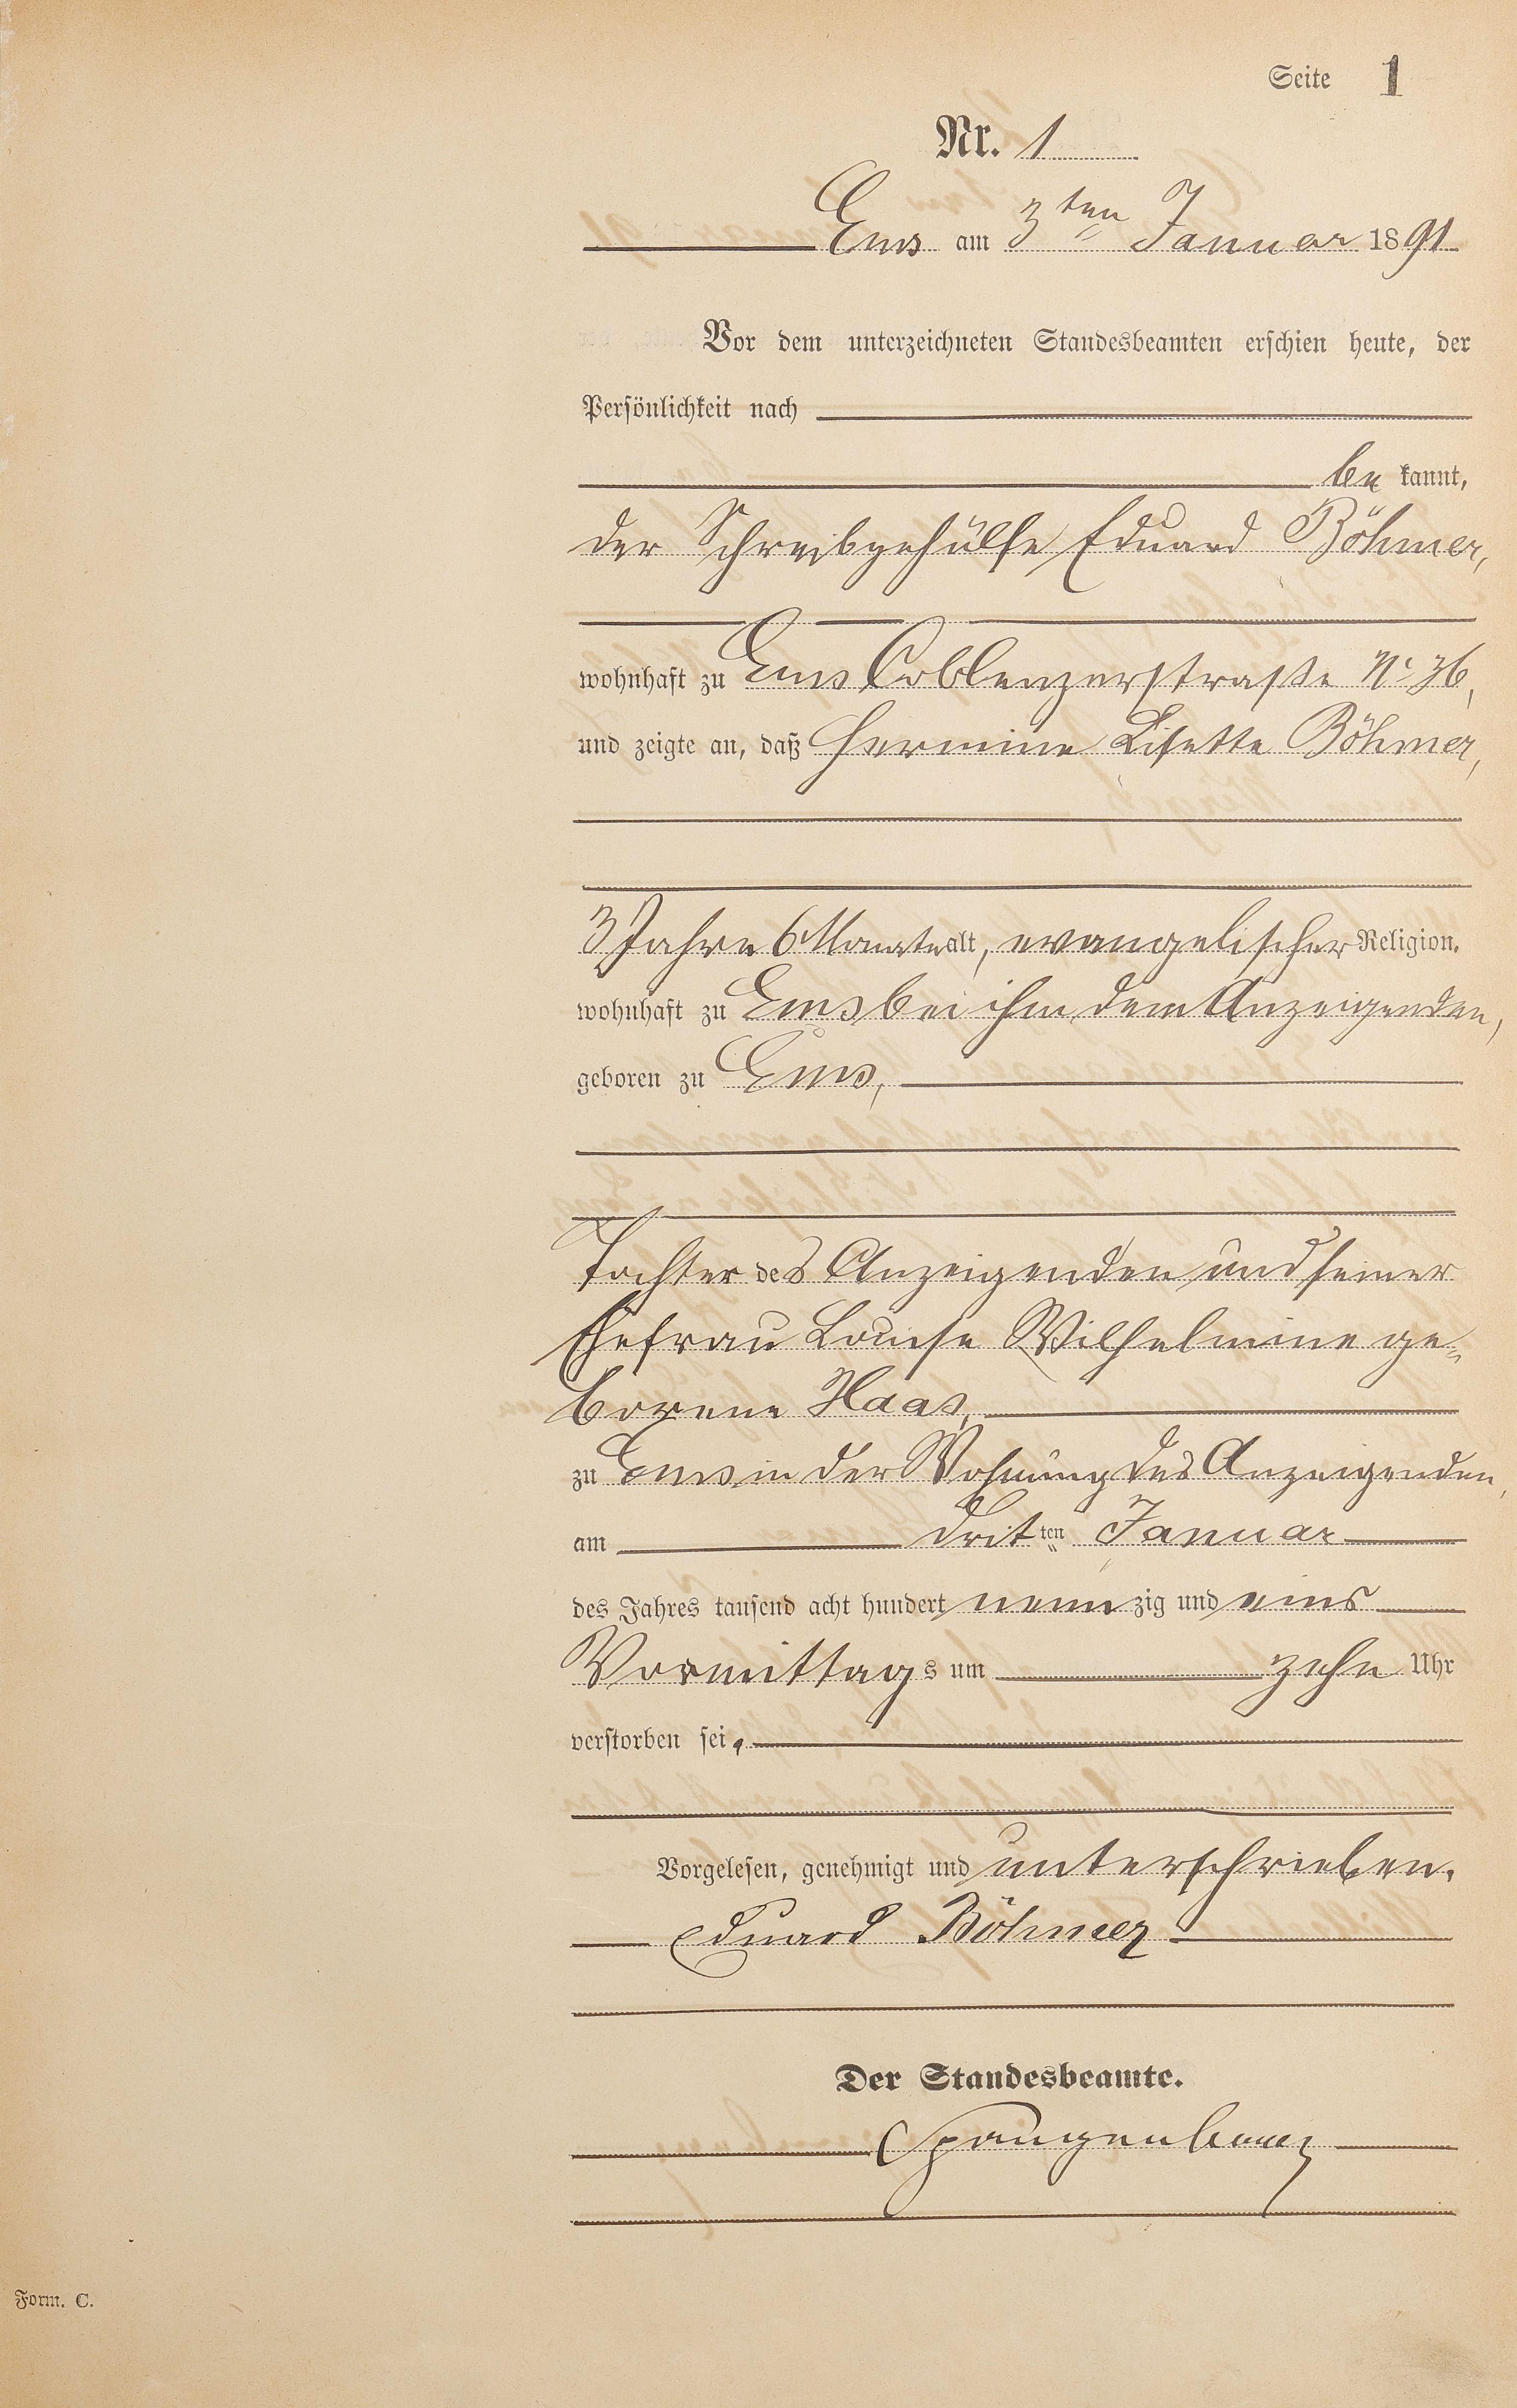 Seite 1
Nr. 1
Ems am 3ten Januar 1891
Vor dem unterzeichneten Standesbeamten erschien heute, der
Persönlichkeit nach
be kannt,
der Schreibgehülfe Eduard Böhmer,
wohnhaft zu Ems Coblenzerstraße No 36,
und zeigte an, daß Hermine Lisette Böhmer,
3 Jahre 6 Monate alt, evangelischer Religion,
wohnhaft zu Ems bei ihm dem Anzeigenden,
geboren zu Ems,
Tochter des Anzeigenden und seiner
Ehefrau Louise Wilhelmine ge-
borene Haas,
zu Ems in der Wohnung des Anzeigenden,
am dritten Januar
des Jahres tausend acht hundert neunzig und eins
Vormittags um zehn Uhr
verstorben sei.
Vorgelesen, genehmigt und unterschrieben.
Eduard Böhmer
Der Standesbeamte.
Spangenberg
Form. C.